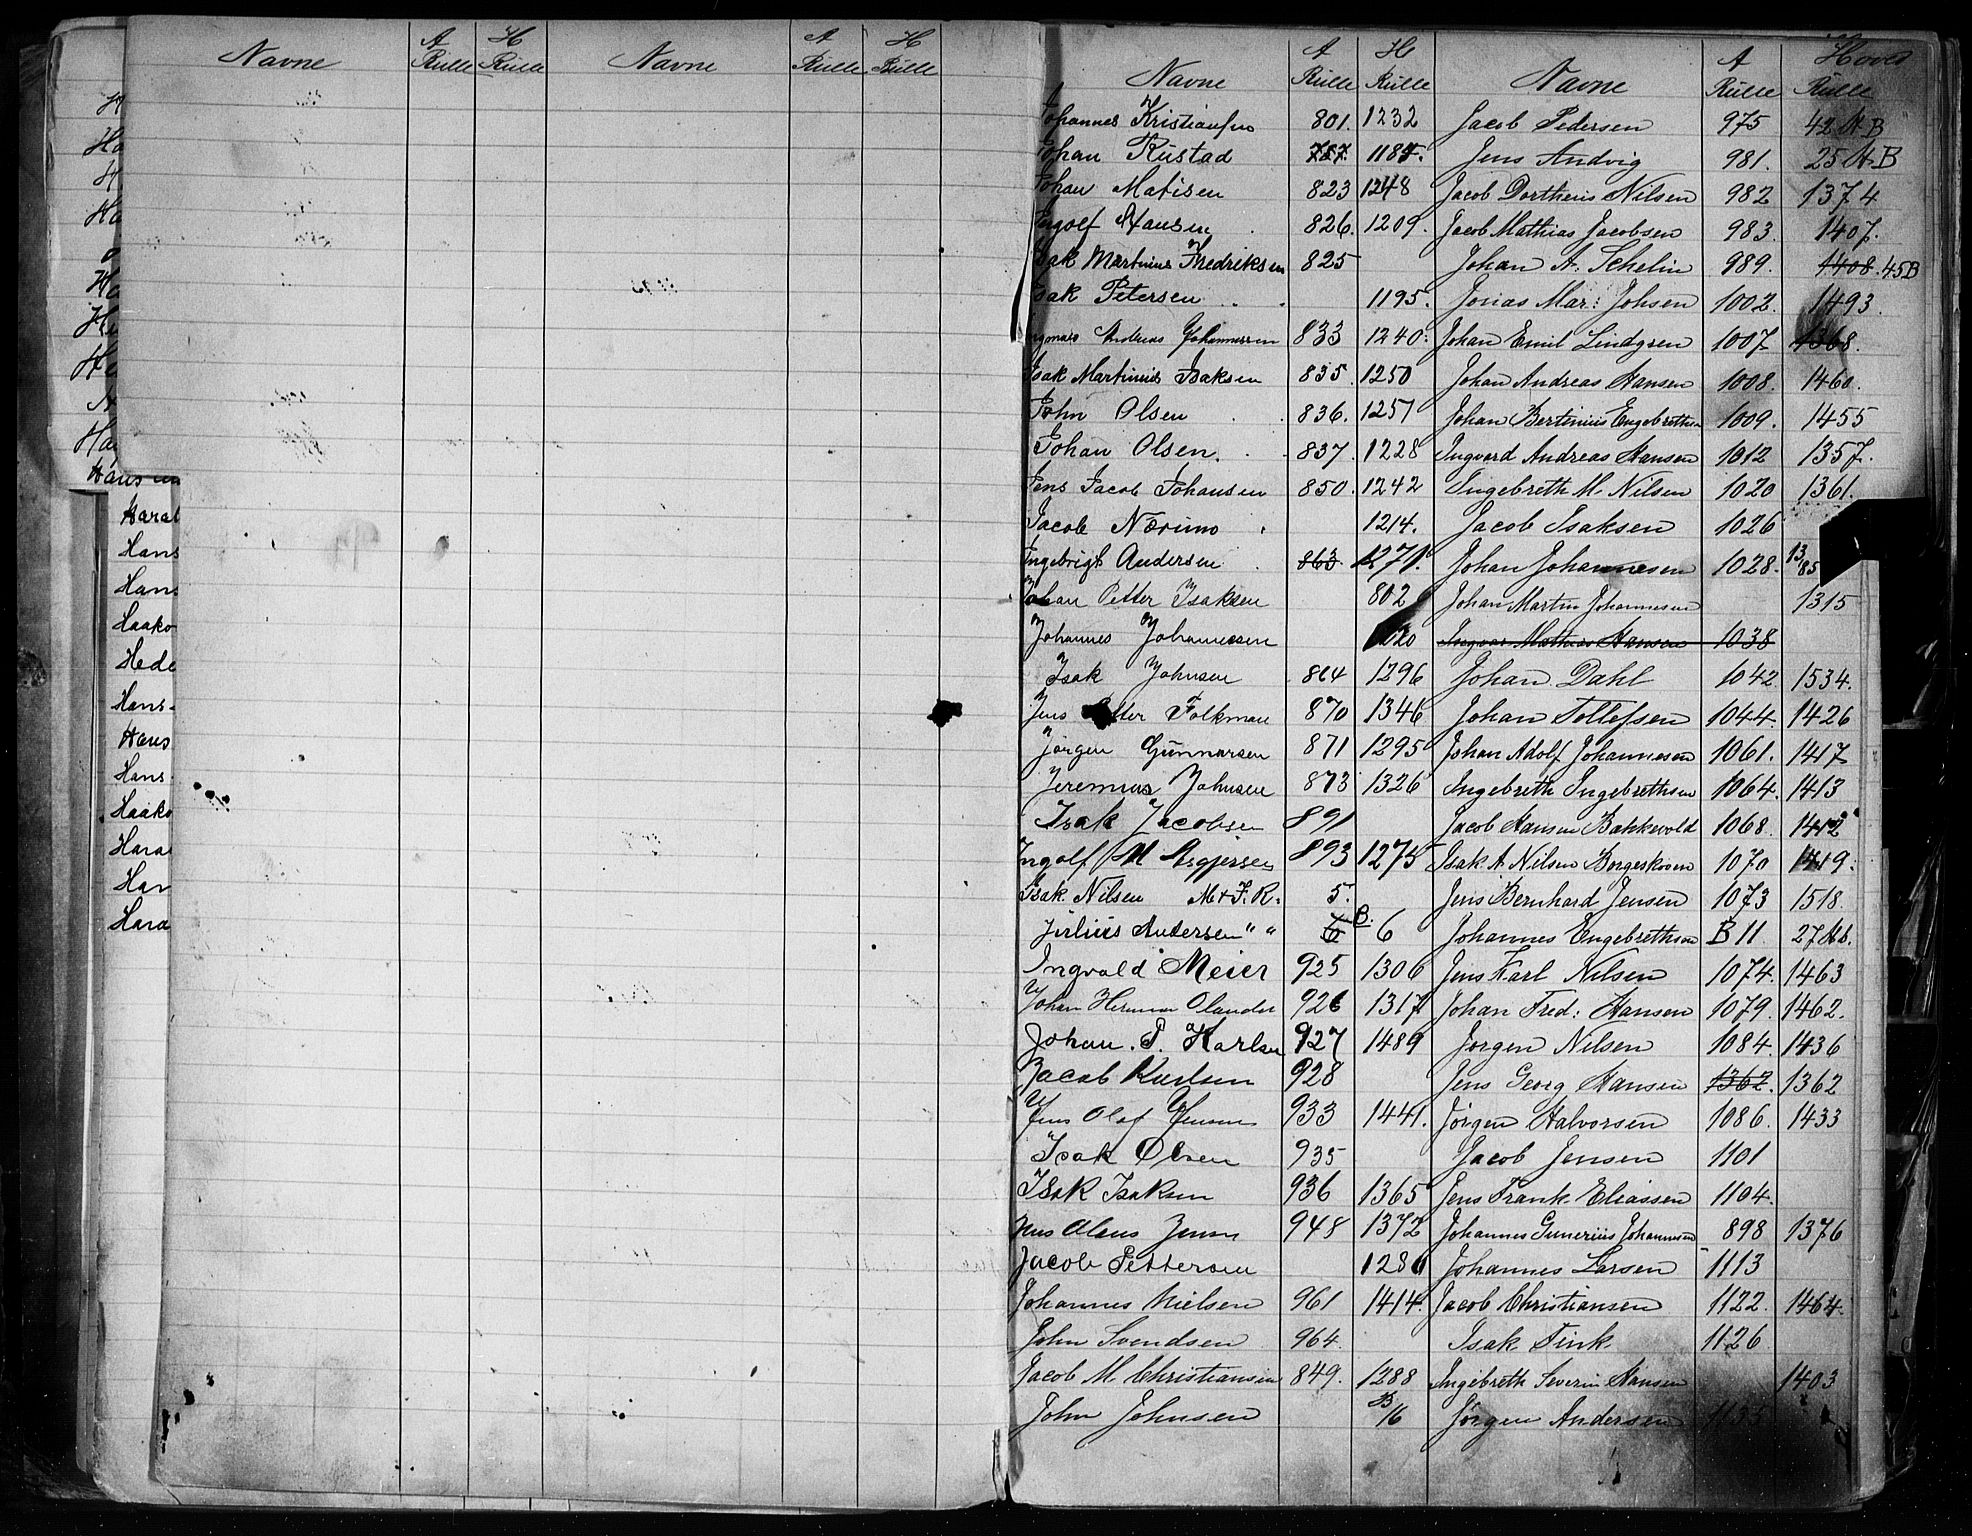 Navne A Rulle H Rulle Navne A Rulle H Rulle
Haral
Hans
Hans
Haako
Hede
Hans
Hans
Hans
Haako
Haral
Har
Hara
Navne A Rulle H Rulle Navne A Rulle Hoved Rulle
Johannes 801. 1232 Jacob Pedersen 975 42 A B
Johan Rustad 1184. Jens Andvig 981. 25 A. B
Johan Matisen 823 1248 Jacob Dortheus Nilsen 982 1374
Ingolf Hansen 826. 1209. Jacob Mathias Jacobsen 983. 1407.
Isak Martinus Fredriksen 825 Johan A. Schelin 989. 1408. 45B
Isak Petersen 1195. Jonas Mar: Johsen 1002. 1493.
Ingmars Andreas Johannessen 833 1240. Johan Emil Lindgren 1007 1368.
Isak Martinius Isaksen 835. 1250 Johan Andreas Hansen 1008. 1460.
John Olsen 836. 1257 Johan Bertinius Engebrethsen 1009. 1455
Johan Olsen. 837. 1228 Ingvard Andreas Hansen 1012 1357.
Jens Jacob Johansen 850. 1242 Ingebreth M. Nilsen 1020 1361.
Jacob 1214. Jacob Isaksen 1026
Ingebrigt Andersen 863. 1271. Johan Johannesen 1028. 13/85
Johan Petter Isaksen 802 Johan Martin Johannesen 1315
Johannes Johannessen Ingvar Mathias Hansen 1038
Isak Johnsen 864 1296 Johan Dahl 1042 1534.
Jens Petter Folkman 870 1346 Johan Tollefsen 1044. 1426
Jørgen Gunnarsen 871 1295 Johan Adolf Johannesen 1061. 1417
Jeremias Johnsen 873 1326 Ingebreth Ingebrethsen 1064. 1413
Isak Jacobsen 891 Jacob Hansen Bakkevold 1068. 1412
Ingolf M Asgjersen 893 1275 Isak A Nilsen Borgeskoven 1070 1419.
Isak Nilsen M+F.R. 5. Jens Bernhard Jensen 1073 1518.
Julius Andersen " " 6 B. 6 Johannes Engebrethsen B 11. 27
Ingvald Meier 925 1306 Jens Karl Nilsen 1074. 1463
Johan Herman Olander 926 1317 Johan Fred: Hansen 1079. 1462.
Johan. P. Karlsen 927 1489 Jørgen Nilsen 1084. 1436
Jacob Karlsen 928 Jens Georg Hansen 1362. 1362
Jens Olaf Jensen 933 1441. Jørgen Halvorsen 1086. 1433
Isak Olsen 935 Jacob Jensen 1101
Isak Isaksen 936 1365 Jens Frank Eliassen 1104.
Jens Olaus Jensen 948 1372 Johannes Gunerius Johannesen 898 1376
Jacob Pettersen 1286 Johannes Larsen 1113
Johannes Nielsen 961 1414. Jacob Christiansen 1122. 1464.
John Svendsen 964. Isak Fink 1126
Jacob M. Christiansen 849. 1288 Ingebreth Severin Hansen 1403
John Johnsen B 16 Jørgen Andersen